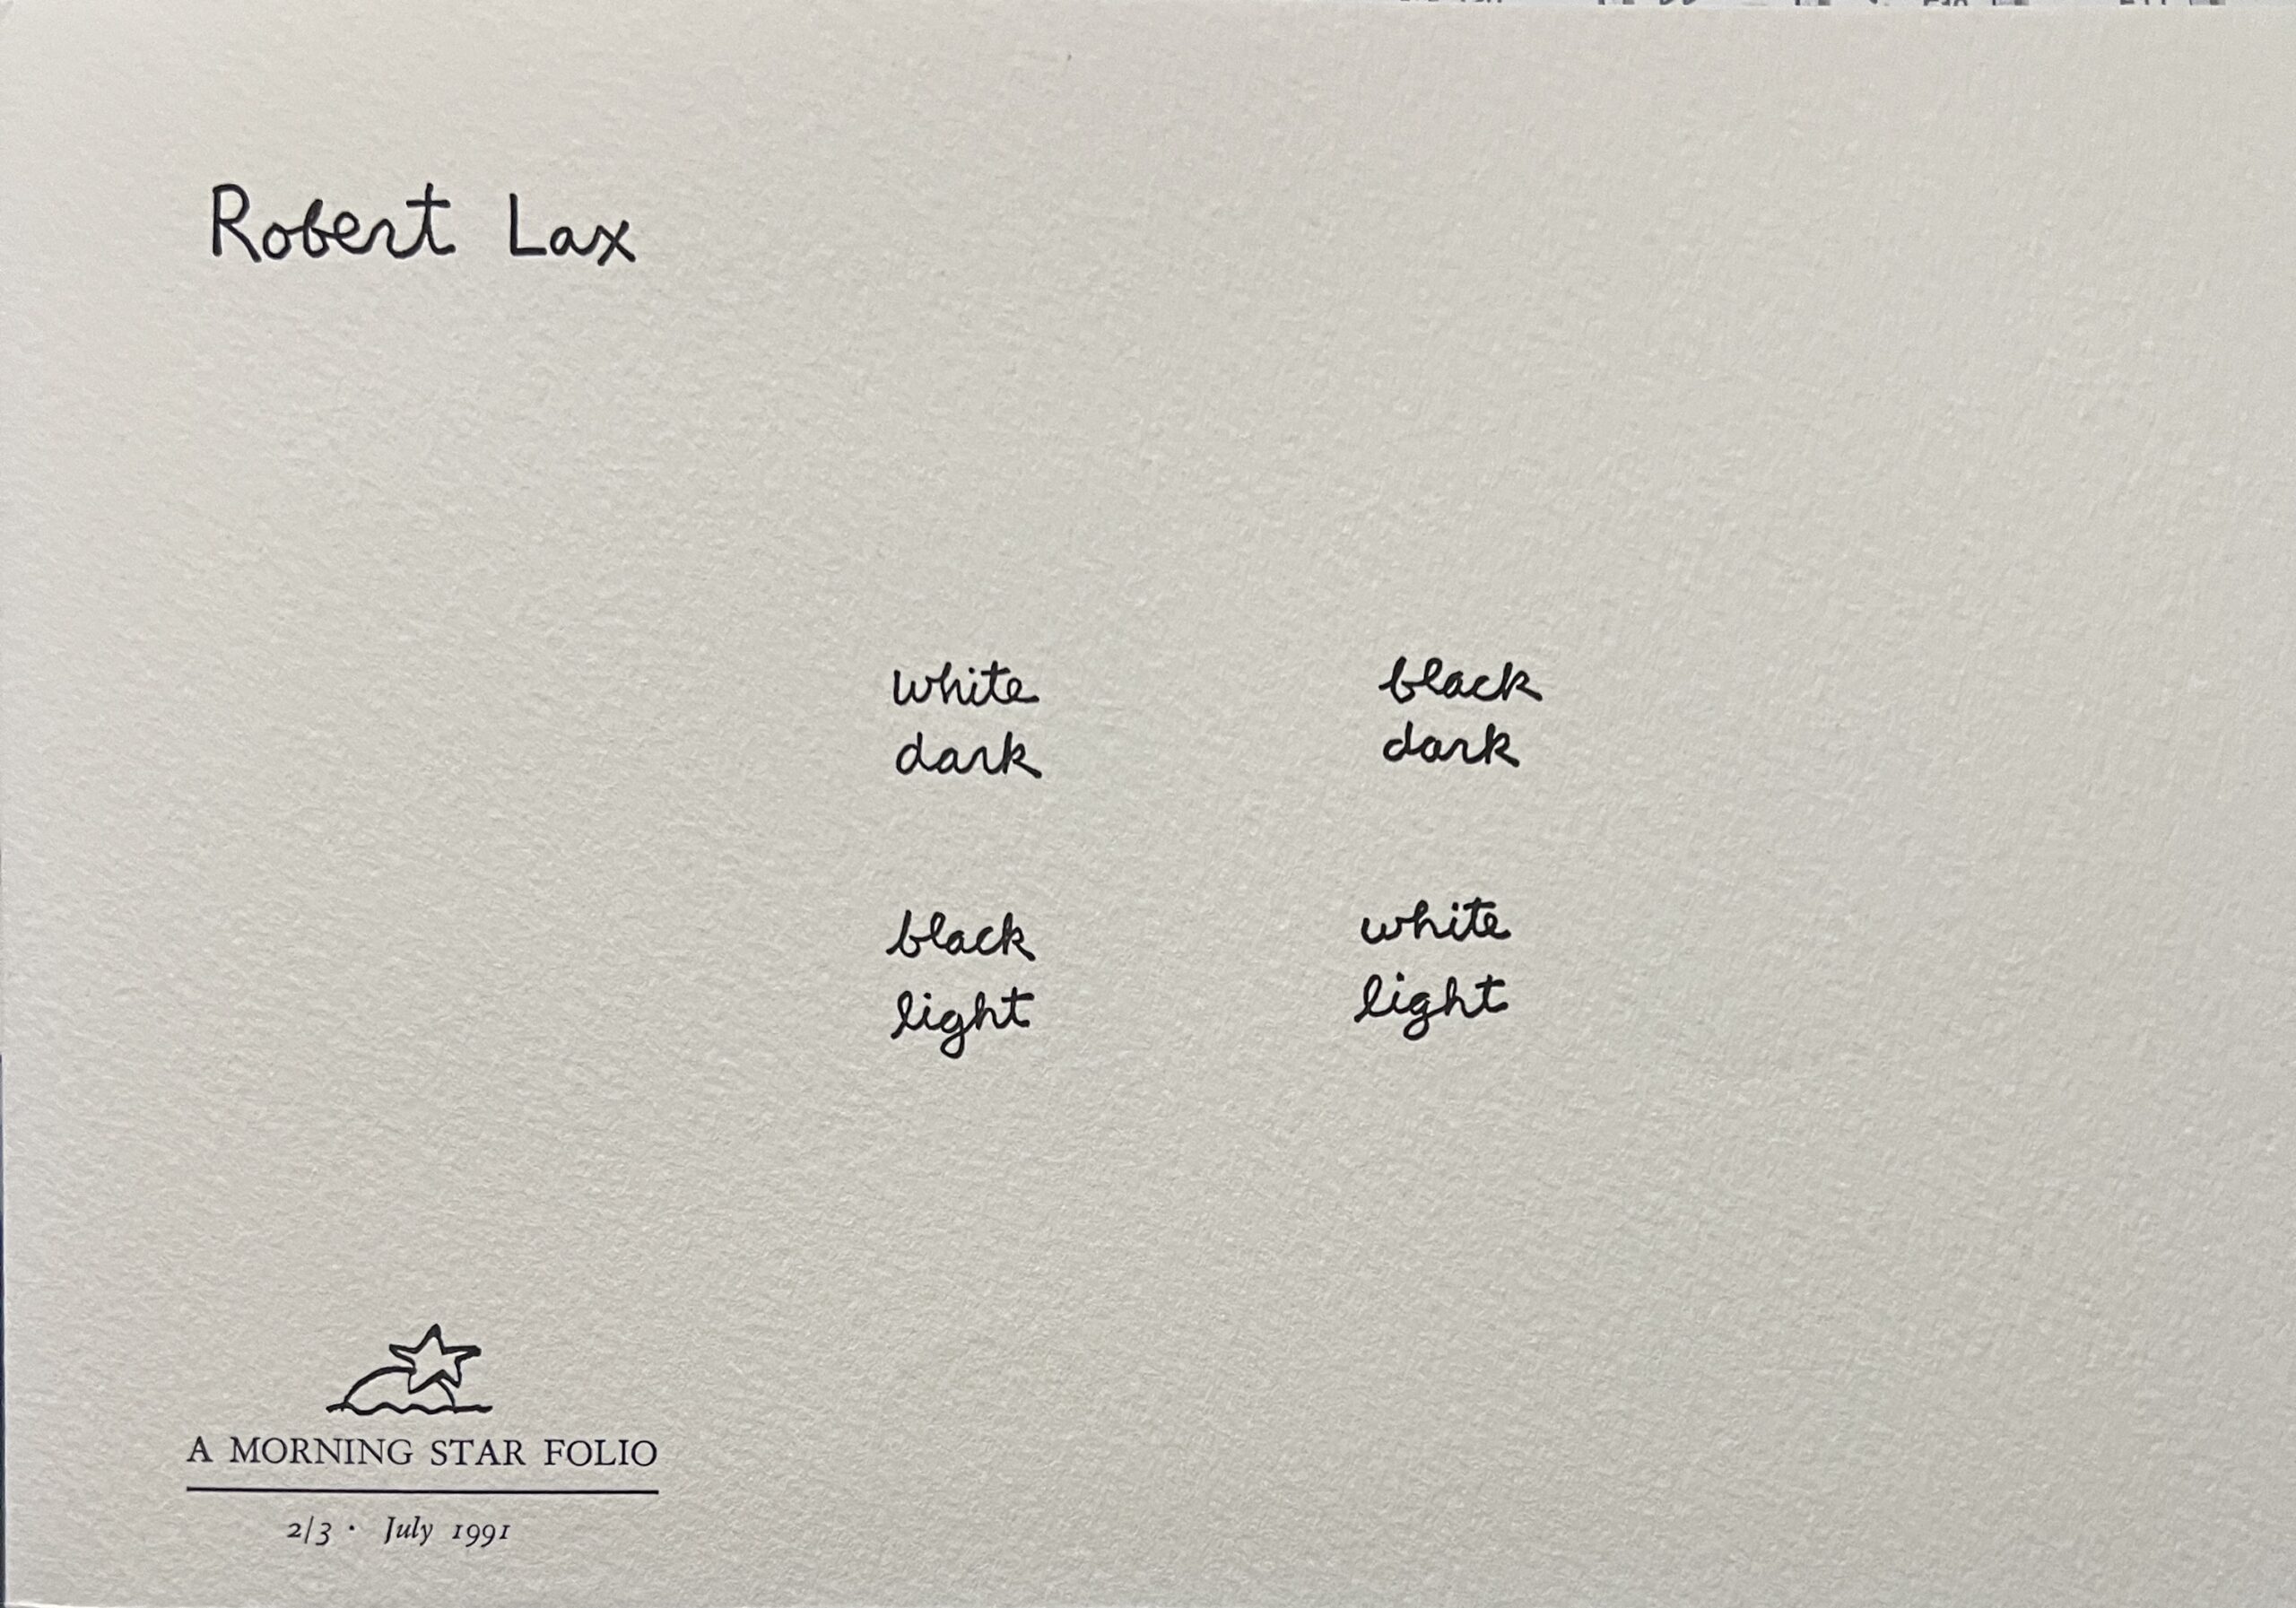 Robert Lax
white
dark
black
dark
black
light
white
light
A MORNING STAR FOLIO
2/3 · July 1991